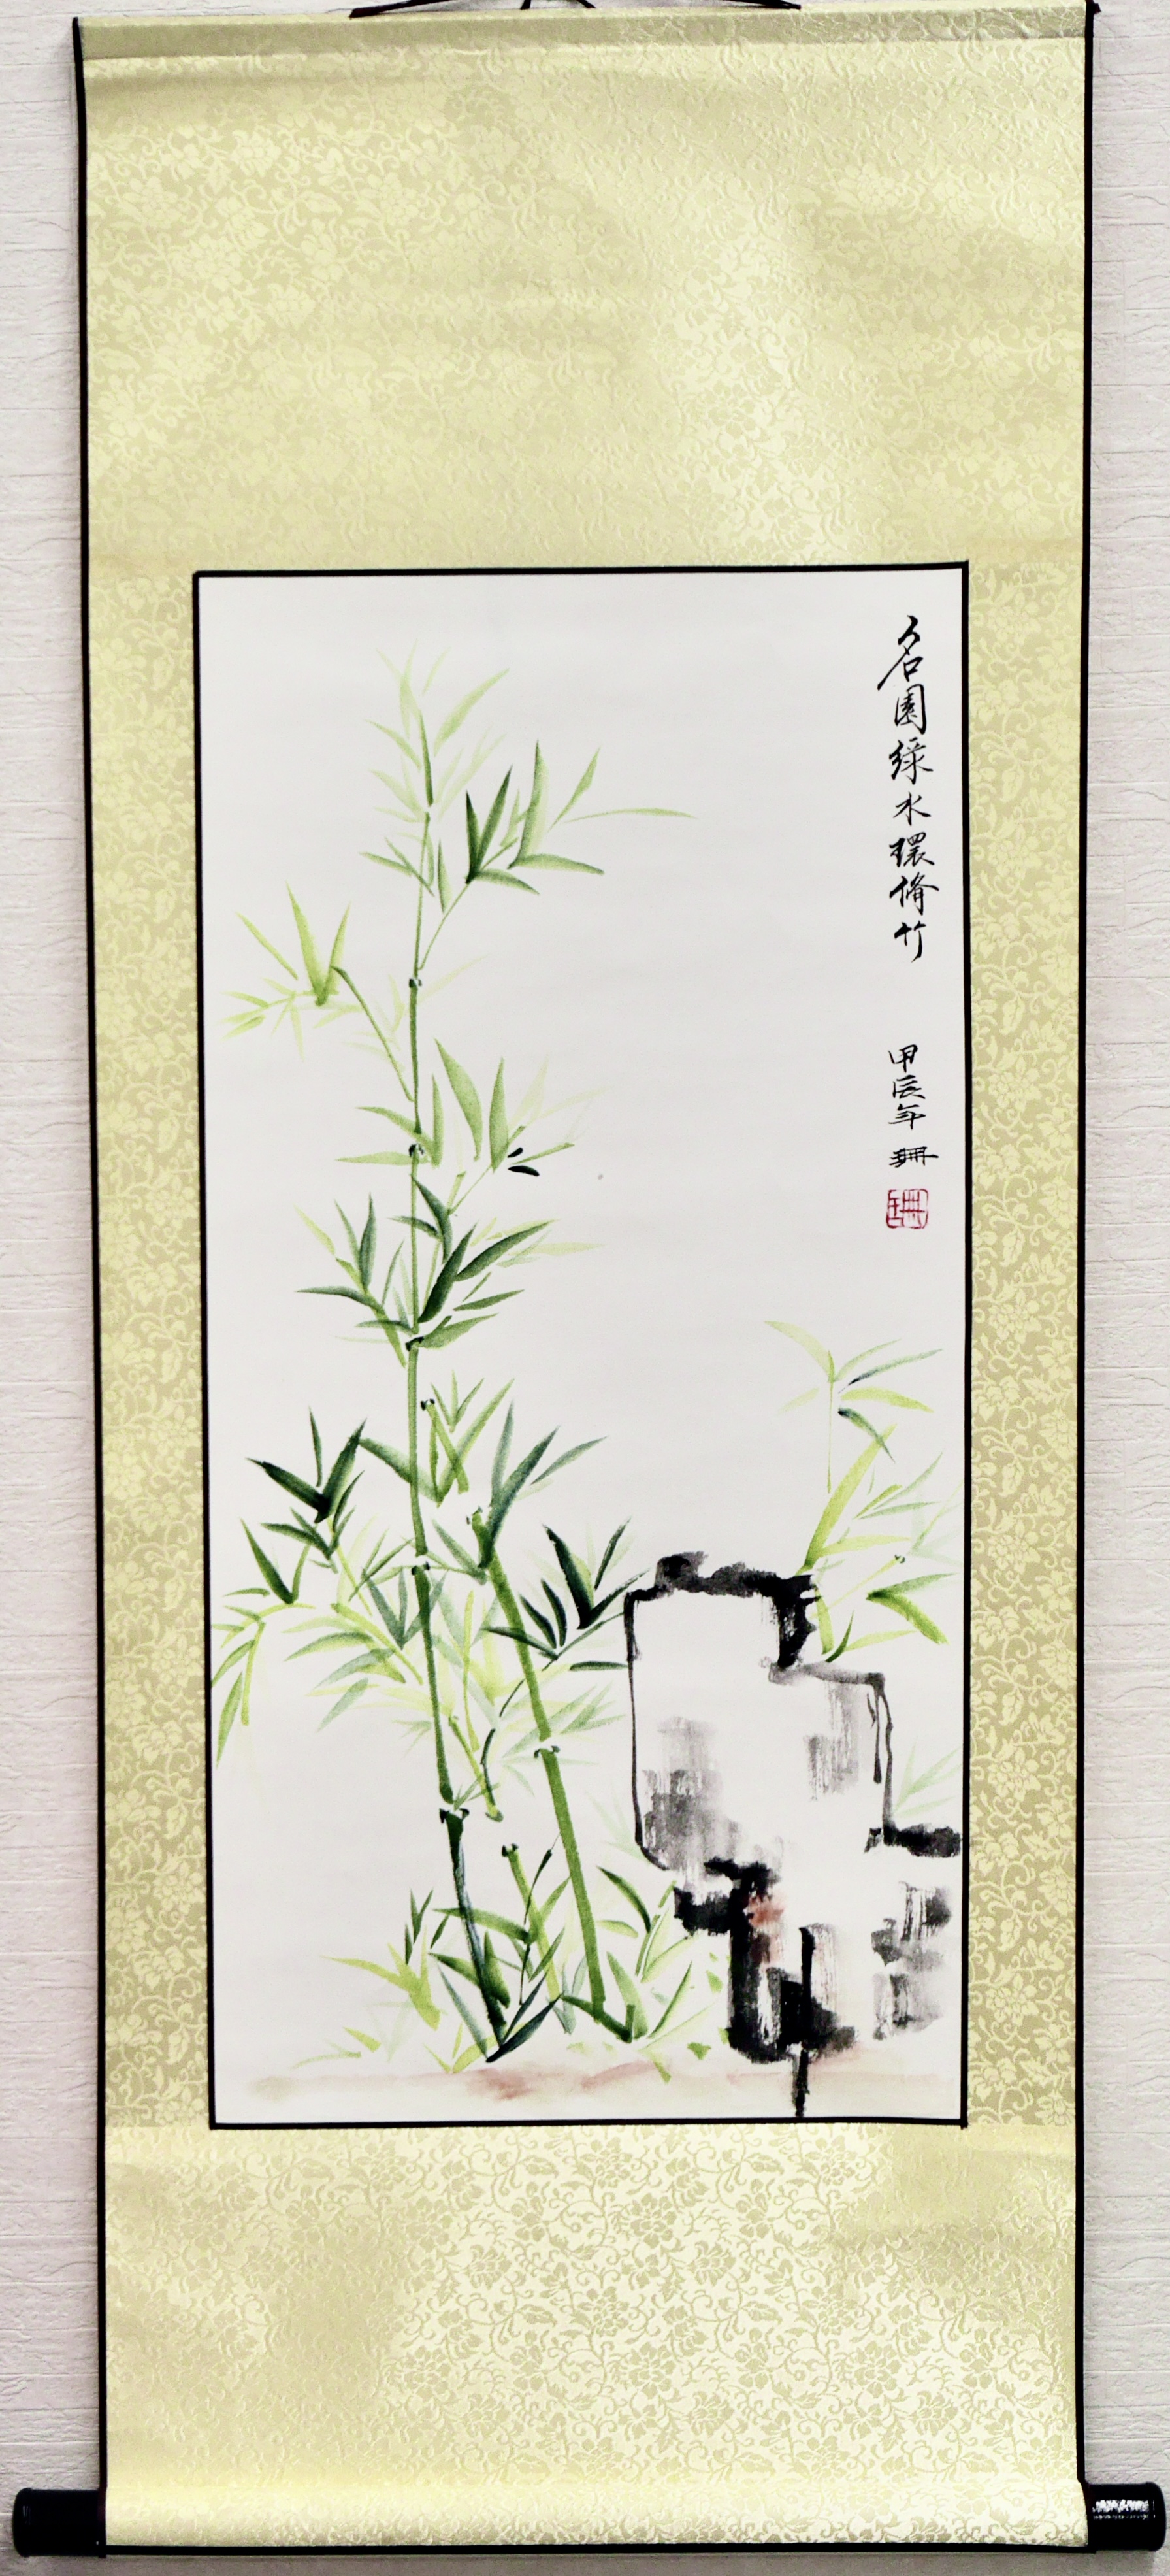 名園綠水環脩竹
甲辰年 珊
珊